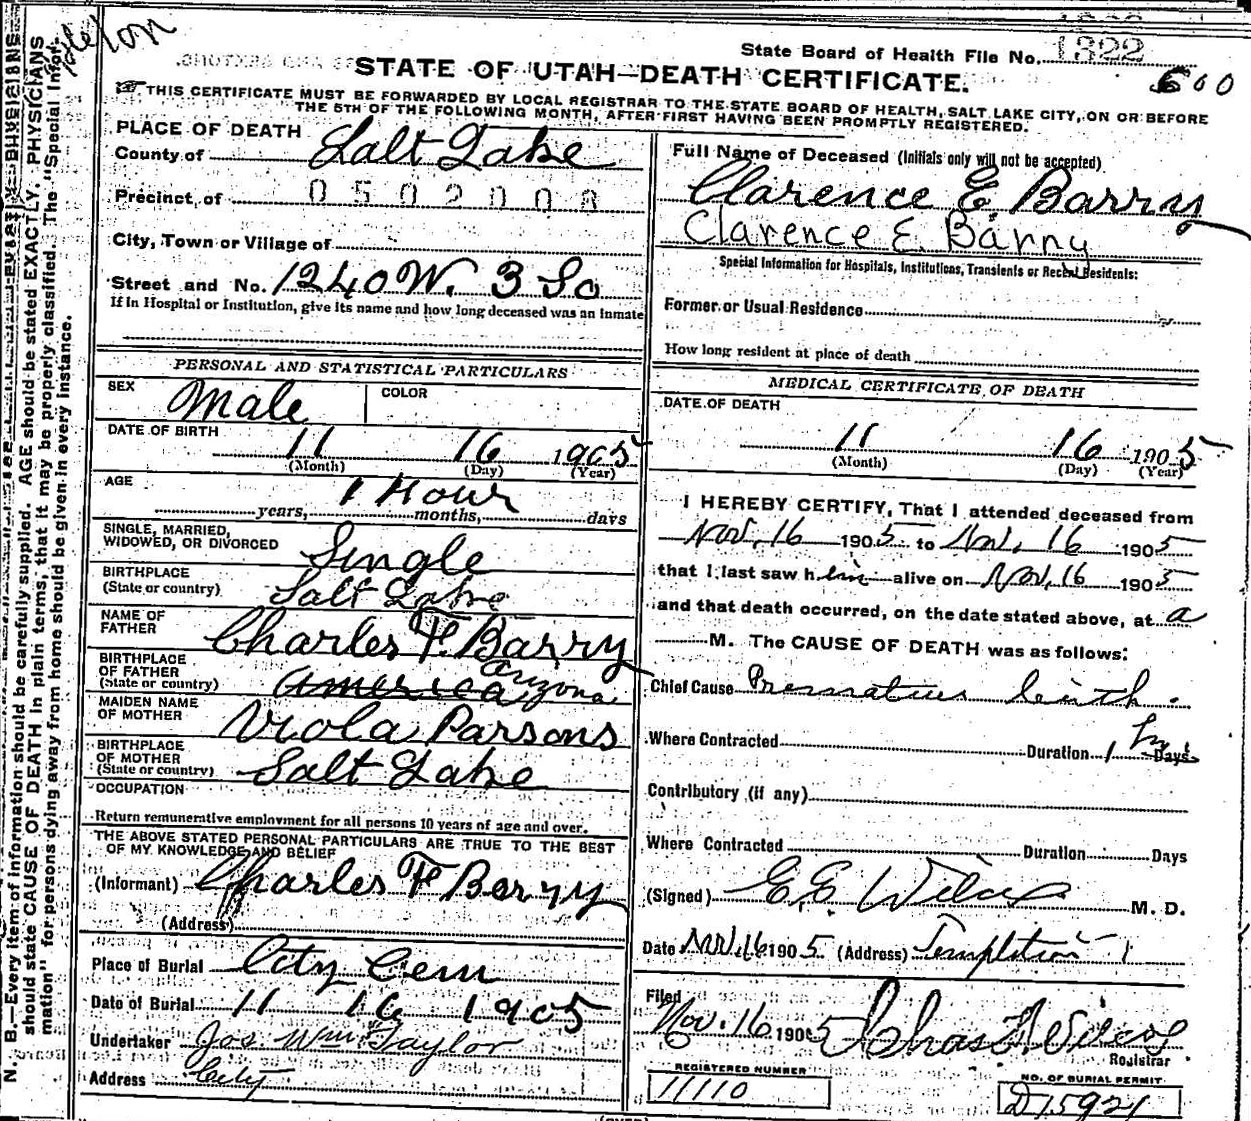 State Board of Health File No. 1822
600
STATE OF UTAH—DEATH CERTIFICATE.
THIS CERTIFICATE MUST BE FORWARDED BY LOCAL REGISTRAR TO THE STATE BOARD OF HEALTH, SALT LAKE CITY, ON OR BEFORE
THE 5TH OF THE FOLLOWING MONTH, AFTER FIRST HAVING BEEN PROMPTLY REGISTERED.
N. B.—Every item of information should be carefully supplied. AGE should be stated EXACTLY. PHYSICIANS
should state CAUSE OF DEATH in plain terms, that it may be properly classified. The "Special Infor-
mation" for persons dying away from home should be given in every instance.
PLACE OF DEATH
County of Salt Lake
Precinct of 0502008
City, Town or Village of
Street and No. 1240 W. 3 So
If in Hospital or Institution, give its name and how long deceased was an inmate
PERSONAL AND STATISTICAL PARTICULARS
SEX Male COLOR
DATE OF BIRTH 11 16 1905
(Month) (Day) (Year)
AGE 1 Hour
years, months, days
SINGLE, MARRIED,
WIDOWED, OR DIVORCED Single
BIRTHPLACE
(State or country) Salt Lake
NAME OF
FATHER Charles F. Barry
BIRTHPLACE
OF FATHER
(State or country) America Arizona
MAIDEN NAME
OF MOTHER Viola Parsons
BIRTHPLACE
OF MOTHER
(State or country) Salt Lake
OCCUPATION
Return remunerative employment for all persons 10 years of age and over.
THE ABOVE STATED PERSONAL PARTICULARS ARE TRUE TO THE BEST
OF MY KNOWLEDGE AND BELIEF
(Informant) Charles F Barry
(Address)
Place of Burial City Cem
Date of Burial 11 16 1905
Undertaker Jos Wm Taylor
Address City
Full Name of Deceased (Initials only will not be accepted)
Clarence E. Barry
Clarence E. Barry
Special Information for Hospitals, Institutions, Transients or Recent Residents:
Former or Usual Residence
How long resident at place of death
MEDICAL CERTIFICATE OF DEATH
DATE OF DEATH
11 16 1905
(Month) (Day) (Year)
I HEREBY CERTIFY, That I attended deceased from
Nov. 16 1905 to Nov. 16 1905
that I last saw him alive on Nov. 16 1905
and that death occurred, on the date stated above, at a
M. The CAUSE OF DEATH was as follows:
Chief Cause Premature birth.
Where Contracted Duration 1 Days
Contributory (if any)
Where Contracted Duration Days
(Signed) E. E. Wilcox M. D.
Date Nov. 16 1905 (Address) Templeton
Filed
Nov. 16 1905
Registrar
REGISTERED NUMBER
11110
NO. OF BURIAL PERMIT
D15921